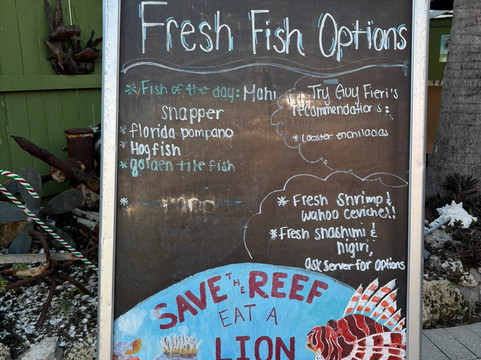 Fresh Fish Options
* Fish of the day: Mahi
snapper
* florida pompano
* Hogfish
* golden tile fish
*
Try Guy Fieri's
recommendations:
* lobster enchiladas
* Fresh Shrimp &
wahoo ceviche!!
* Fresh shashimi &
nigiri,
ask server for options
SAVE THE REEF
EAT A
LION